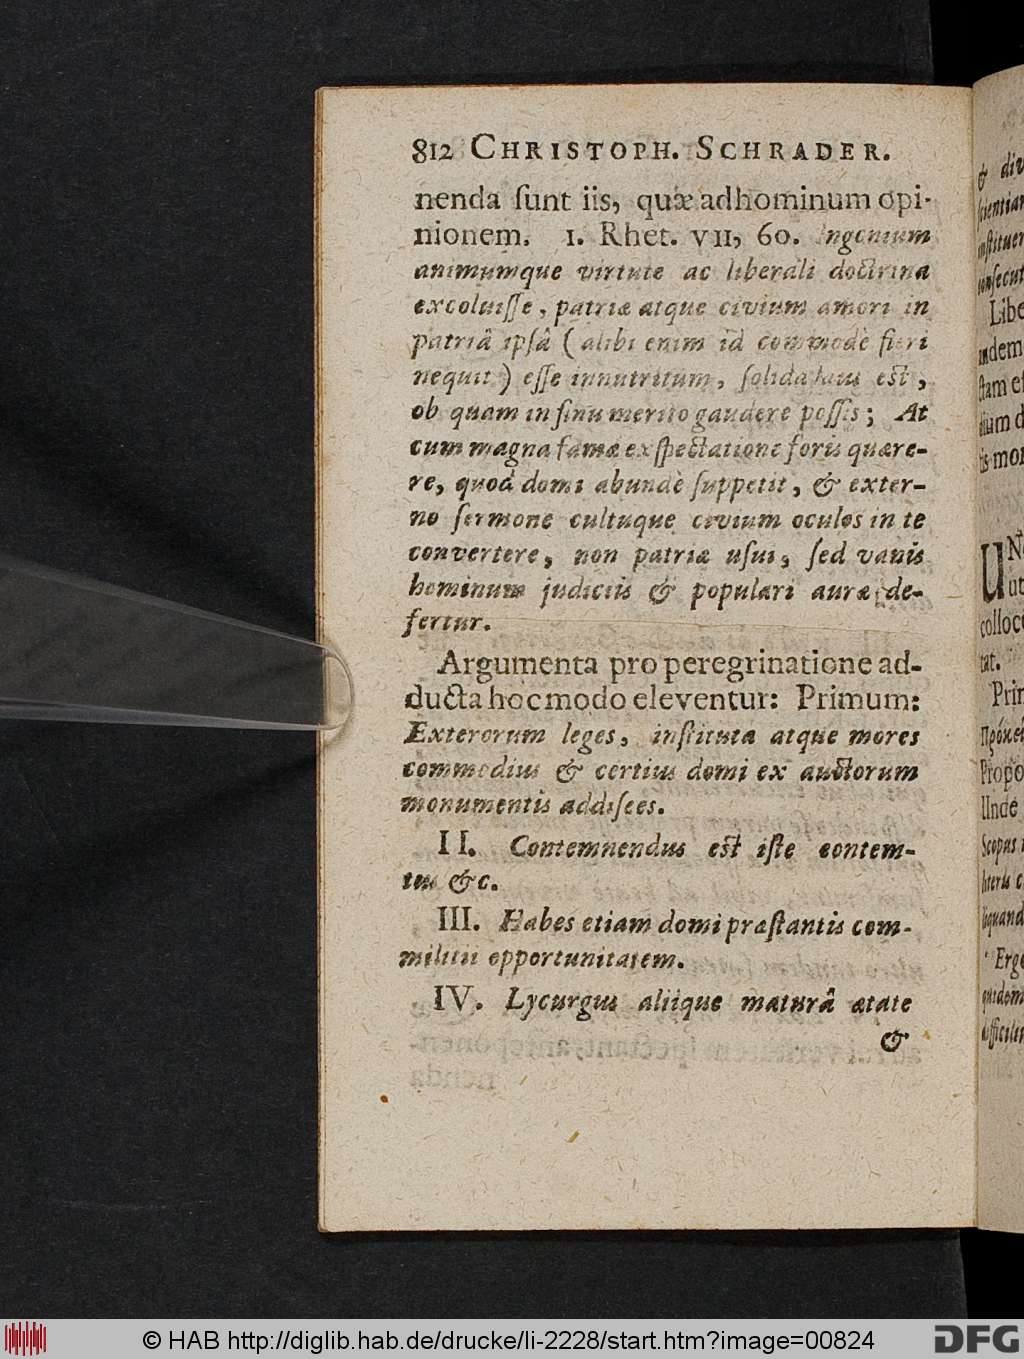 812 CHRISTOPH. SCHRADER.
nenda ſunt iis, quæ ad hominum opi-
nionem. 1. Rhet. VII, 60. Ingenium
animumque virtute ac liberali doctrina
excoluiſſe, patriæ atque civium amori in
patriâ ipſâ (alibi enim id commodè fieri
nequit) eſſe innutritum, ſolida laus eſt,
ob quam in ſinu merito gaudere poſſis; At
cum magna famæ exſpectatione foris quære-
re, quod domi abundè ſuppetit, & exter-
no ſermone cultuque civium oculos in te
convertere, non patriæ uſui, ſed vanis
hominum judiciis & populari auræ de-
fertur.
Argumenta pro peregrinatione ad-
ducta hoc modo eleventur: Primum:
Exterorum leges, inſtituta atque mores
commodius & certius domi ex auctorum
monumentis addiſces.
II. Contemnendus eſt iſte contem-
tus &c.
III. Habes etiam domi præſtantis com-
militii opportunitatem.
IV. Lycurgus aliique maturâ ætate
&
& div
ſcientiam
inſtituer
conſecut
Libe
ſtam eſ
tis mor
UN
ut
colloce
tat.
Prin
Propo
Unde
Scopus
liquand
Ergo
quidem
difficili
© HAB http://diglib.hab.de/drucke/li-2228/start.htm?image=00824
DFG